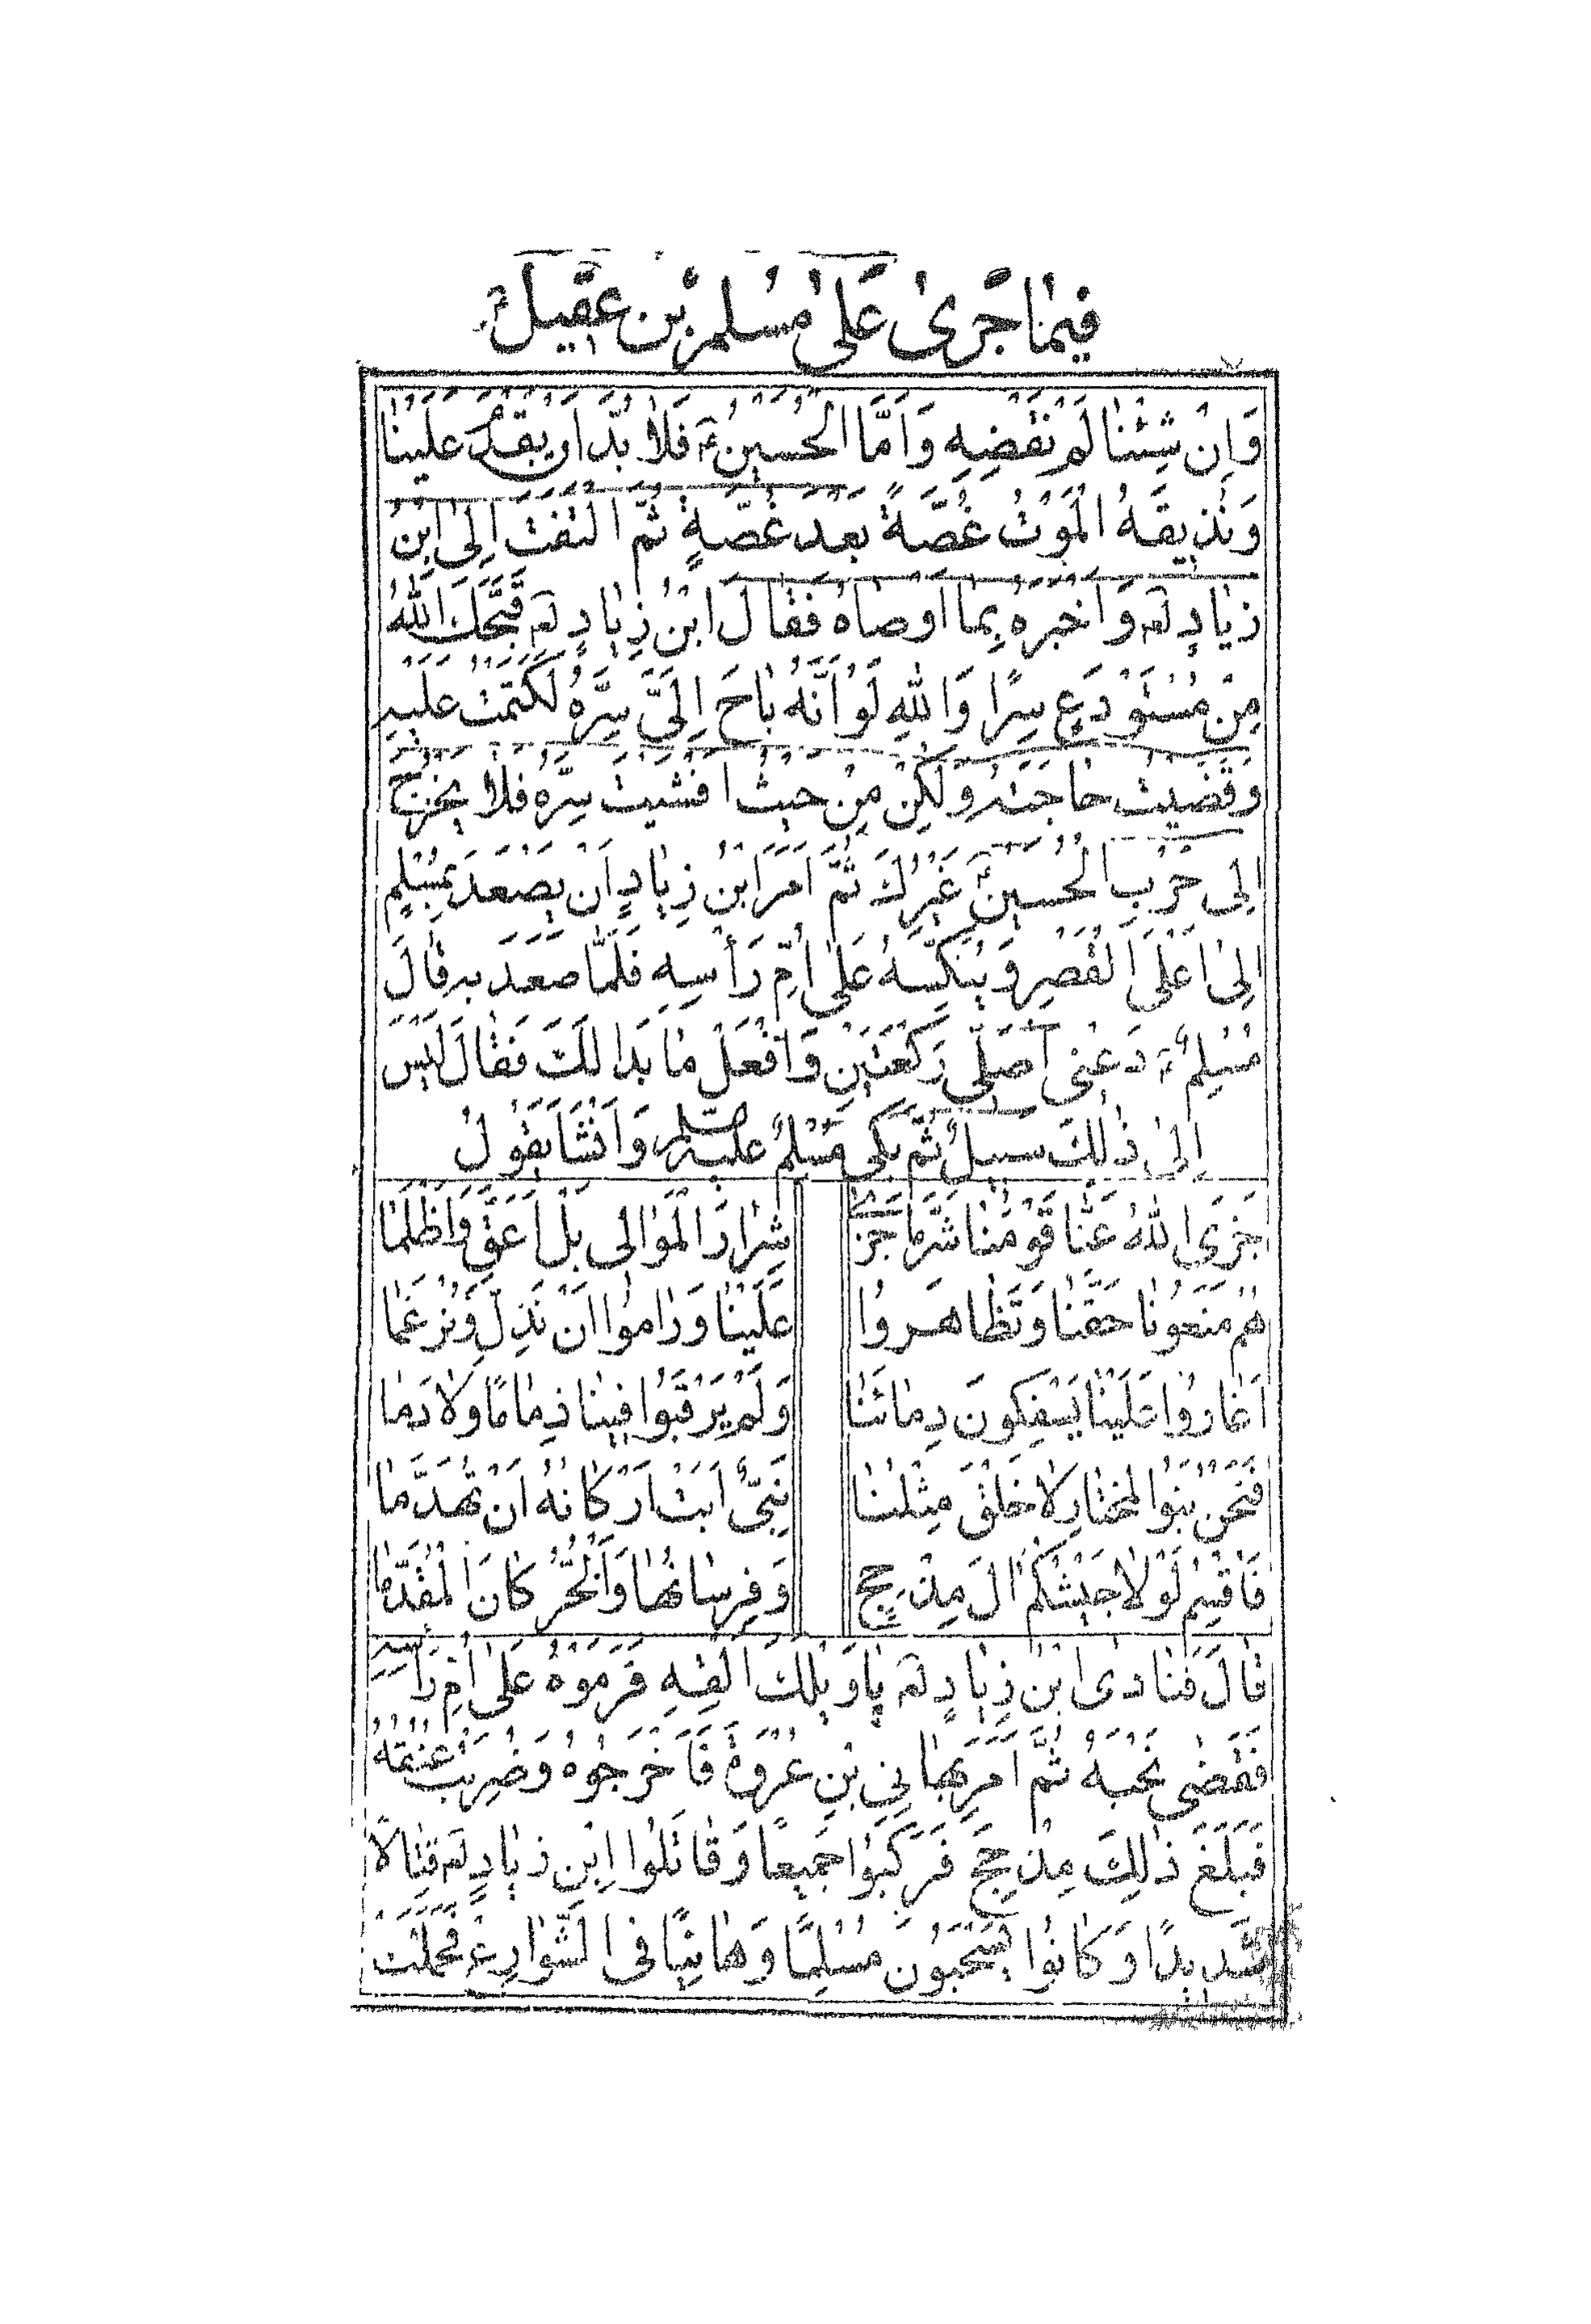 فيما جَرىٰ عَلىٰ مُسلم بْن عَقيل ؑ
وَاِنْ شِئْنا لَمْ نَقْضِهِ وَاَمَّا الْحُسَيْنُ ؑ فَلا بُدَّ اَوْ يَقْدَمَ عَلَيْنا
وَنُذيقَهُ الْمَوْتُ غُصَّةً بَعْدَ غُصَّةٍ ثُمَّ الْتَفَتَ اِلىٰ ابْنُ
زِيادٍ لَعَ وَاَخْبَرَهُ بِما اَوْصاهُ فَقالَ ابْنُ زِيادٍ لَعَ قَبَّحَكَ اللّٰهُ
مِنْ مُسْتَوْدَعٍ سِرًا وَاللّٰهِ لَوْ اَنَّهُ باحَ اِلَيَّ سِرَّهُ لَكَتَمْتُ عَلَيْهِ
وَقَضَيْتُ حاجَتَهُ وَلٰكِنْ مِنْ حَيْثُ اَفْشَيْتَ سِرَّهُ فَلا يَخْرُجُ
اِلى حَرْبِ الْحُسَيْنِ ؑ غَيْرُكَ ثُمَّ اَمَرَ ابْنُ زِيادٍ اَنْ يَصْعَدَ بِمُسْلِمٍ
اِلىٰ اَعْلَى الْقَصْرِ وَيُنَكِّسَهُ عَلىٰ اُمِّ رَأسِهِ فَلَمّا صَعَدَ بِهِ قالَ
مُسْلِمٌ ؑ دَعْني اُصَلّي رَكْعَتَيْنِ وَافْعَلْ ما بَدا لَكَ فَقالَ لَيْسَ
اِلىٰ ذٰلِكَ سَبيلٌ ثُمَّ بَكى مُسْلِمٌ عليه وَاَنْشَأَ يَقُولُ
جَزَى اللّٰهُ عَنّا قَوْمَنا شَرَّ ما جَزىٰ شِرارَ الْمَوالي بَلْ اَعَقَّ وَاَظْلَما
هُمْ مَنَعُونا حَقَّنا وَتَظاهَرُوا عَلَيْنا وَرامُوا اَنْ نَذِلَّ وَنُرْغَما
اَغارُوا عَلَيْنا يَسْفِكُونَ دِمائَنا وَلَمْ يَرْقَبُوا فينا ذِمامًا وَلا دَما
فَنَحْنُ بَنُوا الْمُخْتارِ لا خَلْقَ مِثْلُنا نَبِيٌّ اَبَتْ اَرْكانُهُ اَنْ تُهَدَّما
فَاُقْسِمُ لَوْلا جَيْشُكُمْ الَ مِذْحِجٍ وَفِرْسانُها وَالْحُرُّ كانَ الْمُقَدَّما
قالَ فَنادى ابْنُ زِيادٍ لَعَ يا وَيْلَكَ الْقِهِ فَرَمَوْهُ عَلىٰ اُمِّ رَاسِهِ
فَقَضى نَحْبَهُ ثُمَّ اَمَرَ بِهاني بْنِ عُرْوَةَ فَاَخْرَجُوهُ وَضُرِبَتْ عُنُقُهُ
فَبَلَغَ ذٰلِكَ مِذْحِجَ فَرَكَبُوا جَميعًا وَقاتَلُوا اِبْنِ زِيادٍ لَعَ قِتالًا
شَديدًا وَكانُوا يَسْحَبُونَ مُسْلِمًا وَهانِيًا فِى الشَّوارِعِ فَحَمَلَتْ